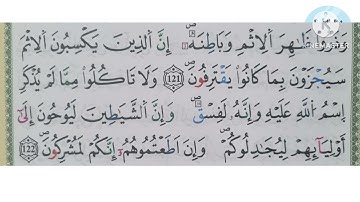 ظَٰهِرَ اَلِاثْمِ وَبَاطِنَهُۥٓ إِنَّ اَلذِينَ يَكْسِبُونَ اَلِاثْمَ
سَيُجْزَوْنَ بِمَا كَانُوا۟ يَقْتَرِفُونَ 121 وَلَا تَاكُلُوا۟ مِمَّا لَمْ يُذْكَرِ
اِسْمُ اُللَّهِ عَلَيْهِ وَإِنَّهُۥ لَفِسْقٌ وَإِنَّ اَلشَّيَٰطِينَ لَيُوحُونَ إِلَىٰٓ
أَوْلِيَآئِهِمْ لِيُجَٰدِلُوكُمْ وَإِنَ اَطَعْتُمُوهُمُۥٓ إِنَّكُمْ لَمُشْرِكُونَ 122